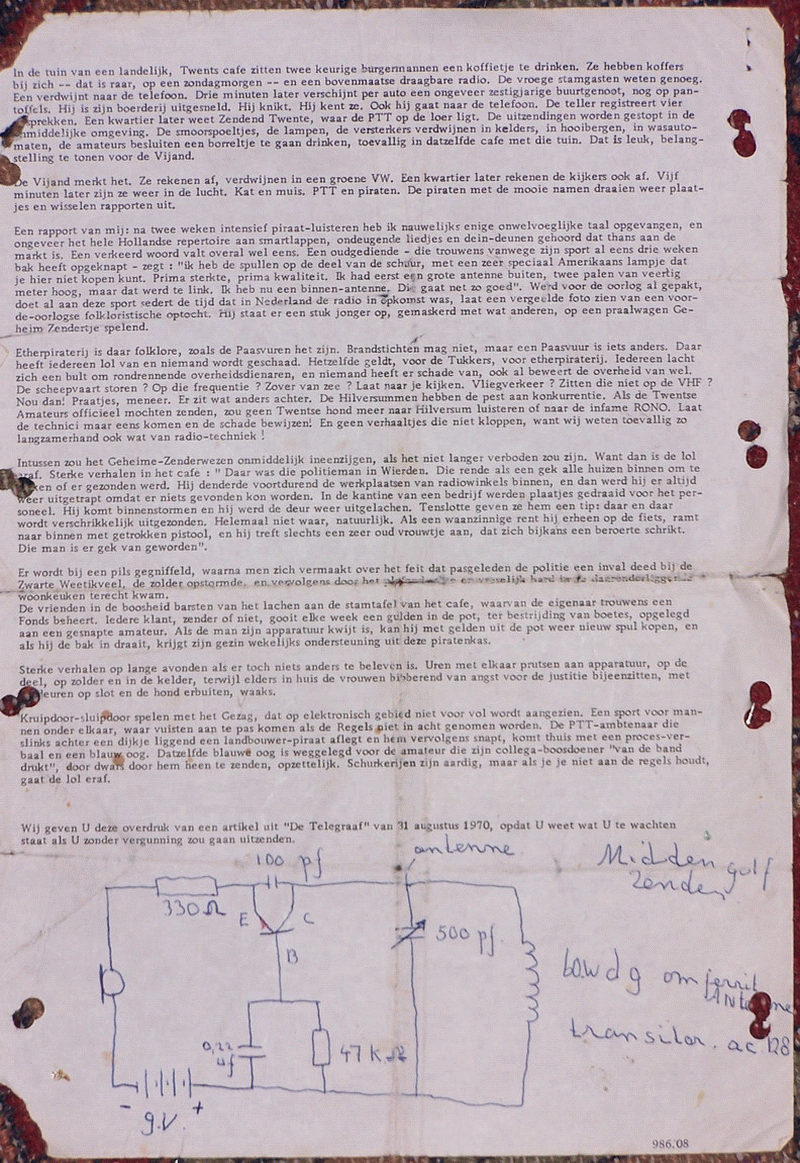 In de tuin van een landelijk, Twents cafe zitten twee keurige burgermannen een koffietje te drinken. Ze hebben koffers
bij zich -- dat is raar, op een zondagmorgen -- en een bovenmaatse draagbare radio. De vroege stamgasten weten genoeg.
Een verdwijnt naar de telefoon. Drie minuten later verschijnt per auto een ongeveer zestigjarige buurtgenoot, nog op pan-
toffels. Hij is zijn boerderij uitgesneld. Hij knikt. Hij kent ze. Ook hij gaat naar de telefoon. De teller registreert vier
gesprekken. Een kwartier later weet Zendend Twente, waar de PTT op de loer ligt. De uitzendingen worden gestopt in de
onmiddelijke omgeving. De smoorspoeltjes, de lampen, de versterkers verdwijnen in kelders, in hooibergen, in wasauto-
maten, de amateurs besluiten een borreltje te gaan drinken, toevallig in datzelfde cafe met die tuin. Dat is leuk, belang-
stelling te tonen voor de Vijand.
De Vijand merkt het. Ze rekenen af, verdwijnen in een groene VW. Een kwartier later rekenen de kijkers ook af. Vijf
minuten later zijn ze weer in de lucht. Kat en muis. PTT en piraten. De piraten met de mooie namen draaien weer plaat-
jes en wisselen rapporten uit.
Een rapport van mij: na twee weken intensief piraat-luisteren heb ik nauwelijks enige onwelvoeglijke taal opgevangen, en
ongeveer het hele Hollandse repertoire aan smartlappen, ondeugende liedjes en dein-deunen gehoord dat thans aan de
markt is. Een verkeerd woord valt overal wel eens. Een oudgediende - die trouwens vanwege zijn sport al eens drie weken
bak heeft opgeknapt - zegt : "ik heb de spullen op de deel van de schuur, met een zeer speciaal Amerikaans lampje dat
je hier niet kopen kunt. Prima sterkte, prima kwaliteit. Ik had eerst een grote antenne buiten, twee palen van veertig
meter hoog, maar dat werd te link. Ik heb nu een binnen-antenne. Die gaat net zo goed". Werd voor de oorlog al gepakt,
doet al aan deze sport sedert de tijd dat in Nederland de radio in opkomst was, laat een vergeelde foto zien van een voor-
de-oorlogse folkloristische optocht. Hij staat er een stuk jonger op, gemaskerd met wat anderen, op een praalwagen Ge-
heim Zendertje spelend.
Etherpiraterij is daar folklore, zoals de Paasvuren het zijn. Brandstichten mag niet, maar een Paasvuur is iets anders. Daar
heeft iedereen lol van en niemand wordt geschaad. Hetzelfde geldt, voor de Tukkers, voor etherpiraterij. Iedereen lacht
zich een bult om rondrennende overheidsdienaren, en niemand heeft er schade van, ook al beweert de overheid van wel.
De scheepvaart storen ? Op die frequentie ? Zover van zee ? Laat naar je kijken. Vliegverkeer ? Zitten die niet op de VHF ?
Nou dan! Praatjes, meneer. Er zit wat anders achter. De Hilversummen hebben de pest aan konkurrentie. Als de Twentse
Amateurs officieel mochten zenden, zou geen Twentse hond meer naar Hilversum luisteren of naar de infame RONO. Laat
de technici maar eens komen en de schade bewijzen! En geen verhaaltjes die niet kloppen, want wij weten toevallig zo
langzamerhand ook wat van radio-techniek !
Intussen zou het Geheime-Zenderwezen onmiddelijk ineenzijgen, als het niet langer verboden zou zijn. Want dan is de lol
eraf. Sterke verhalen in het cafe : " Daar was die politieman in Wierden. Die rende als een gek alle huizen binnen om te
kijken of er gezonden werd. Hij denderde voortdurend de werkplaatsen van radiowinkels binnen, en dan werd hij er altijd
weer uitgetrapt omdat er niets gevonden kon worden. In de kantine van een bedrijf werden plaatjes gedraaid voor het per-
soneel. Hij komt binnenstormen en hij werd de deur weer uitgelachen. Tenslotte geven ze hem een tip: daar en daar
wordt verschrikkelijk uitgezonden. Helemaal niet waar, natuurlijk. Als een waanzinnige rent hij erheen op de fiets, ramt
naar binnen met getrokken pistool, en hij treft slechts een zeer oud vrouwtje aan, dat zich bijkans een beroerte schrikt.
Die man is er gek van geworden".
Er wordt bij een pils gegniffeld, waarna men zich vermaakt over het feit dat pasgeleden de politie een inval deed bij de
Zwarte Weetikveel, de zolder opstormde, en vervolgens door het
woonkeuken terecht kwam.
De vrienden in de boosheid barsten van het lachen aan de stamtafel van het cafe, waarvan de eigenaar trouwens een
Fonds beheert. Iedere klant, zender of niet, gooit elke week een gulden in de pot, ter bestrijding van boetes, opgelegd
aan een gesnapte amateur. Als de man zijn apparatuur kwijt is, kan hij met gelden uit de pot weer nieuw spul kopen, en
als hij de bak in draait, krijgt zijn gezin wekelijks ondersteuning uit deze piratenkas.
Sterke verhalen op lange avonden als er toch niets anders te beleven is. Uren met elkaar prutsen aan apparatuur, op de
deel, op zolder en in de kelder, terwijl elders in huis de vrouwen bibberend van angst voor de justitie bijeenzitten, met
deuren op slot en de hond erbuiten, waaks.
Kruipdoor-sluipdoor spelen met het Gezag, dat op elektronisch gebied niet voor vol wordt aangezien. Een sport voor man-
nen onder elkaar, waar vuisten aan te pas komen als de Regels niet in acht genomen worden. De PTT-ambtenaar die
slinks achter een dijkje liggend een landbouwer-piraat aflegt en hem vervolgens snapt, komt thuis met een proces-ver-
baal en een blauw oog. Datzelfde blauwe oog is weggelegd voor de amateur die zijn collega-boosdoener "van de band
drukt", door dwars door hem heen te zenden, opzettelijk. Schurkerijen zijn aardig, maar als je je niet aan de regels houdt,
gaat de lol eraf.
Wij geven U deze overdruk van een artikel uit "De Telegraaf" van 31 augustus 1970, opdat U weet wat U te wachten
staat als U zonder vergunning zou gaan uitzenden.
100 pf
antenne
Midden golf
Zender
330 Ω
E
C
500 pf
B
60 wdg om ferrit
Antenne
transitor. ac 128
0,22
uf
47 K Ω
- +
9.V.
986.08